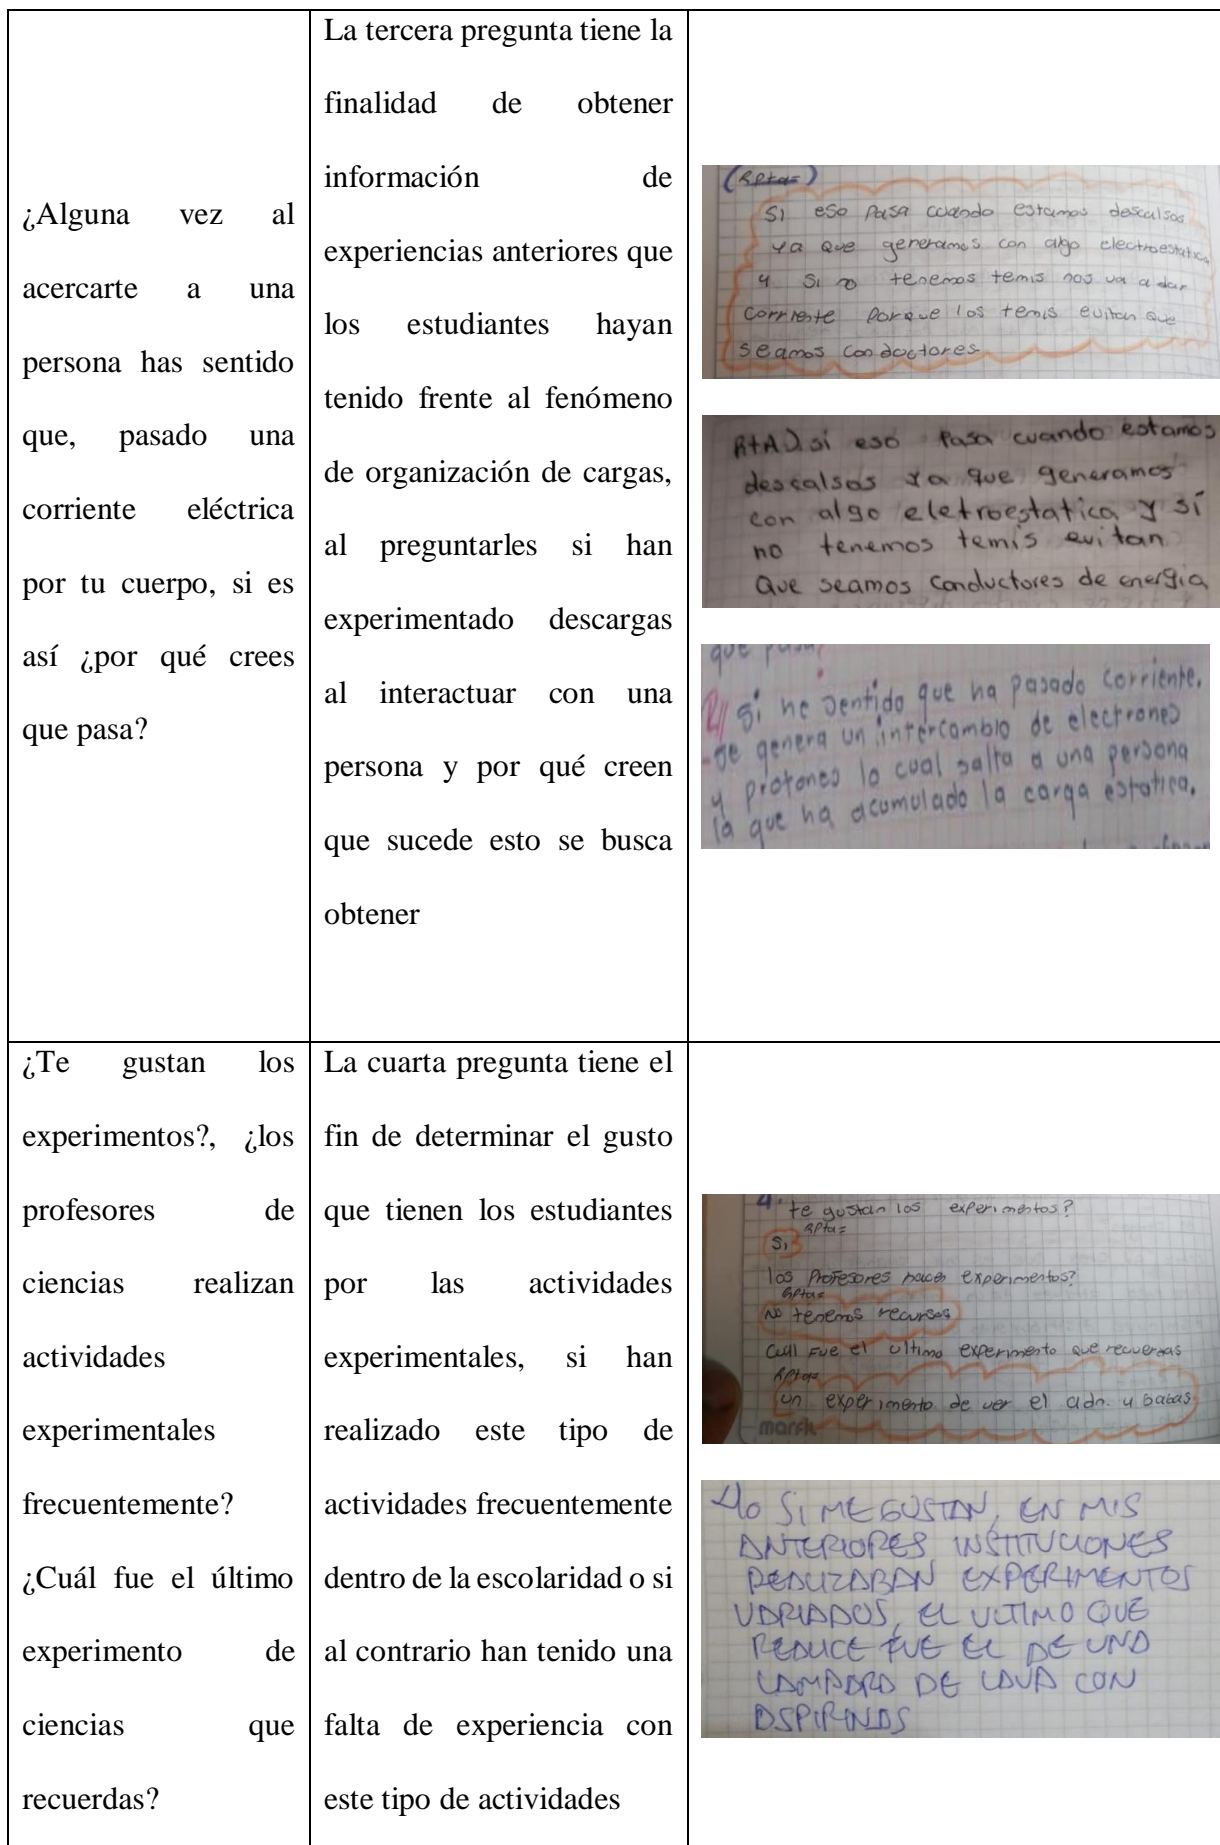 ¿Alguna vez al
acercarte a una
persona has sentido
que, pasado una
corriente eléctrica
por tu cuerpo, si es
así ¿por qué crees
que pasa?
La tercera pregunta tiene la
finalidad de obtener
información de
experiencias anteriores que
los estudiantes hayan
tenido frente al fenómeno
de organización de cargas,
al preguntarles si han
experimentado descargas
al interactuar con una
persona y por qué creen
que sucede esto se busca
obtener
(Rpta=)
Si eso Pasa cuando estamos descalsos
ya que generamos con algo electroestatica
y si no tenemos temis nos va a dar
corriente Porque los temis evitan que
seamos conductores
RtA) si eso Pasa cuando estamos
descalsos ya que generamos
con algo eletroestatica y sí
no tenemos temis evitan
Que seamos conductores de energia
que pasa?
R// Si he sentido que ha pasado corriente.
-se genera un intercambio de electrones
y protones lo cual salta a una persona
la que ha acumulado la carga estatica.
¿Te gustan los
experimentos?, ¿los
profesores de
ciencias realizan
actividades
experimentales
frecuentemente?
¿Cuál fue el último
experimento de
ciencias que
recuerdas?
La cuarta pregunta tiene el
fin de determinar el gusto
que tienen los estudiantes
por las actividades
experimentales, si han
realizado este tipo de
actividades frecuentemente
dentro de la escolaridad o si
al contrario han tenido una
falta de experiencia con
este tipo de actividades
4. te gustan los experimentos?
Rpta=
Si
los Profesores hacen experimentos?
Rpta=
No tenemos recursos
Cuál Fue el ultimo experimento que recuerdas
Rpta=
un experimento de ver el adn. y babas
marfil
4o SI ME GUSTAN, EN MIS
ANTERIORES INSTITUCIONES
REALIZABAN EXPERIMENTOS
VARIADOS, EL ULTIMO QUE
REALICE FUE EL DE UNA
LAMPARA DE LAVA CON
ASPIRINAS